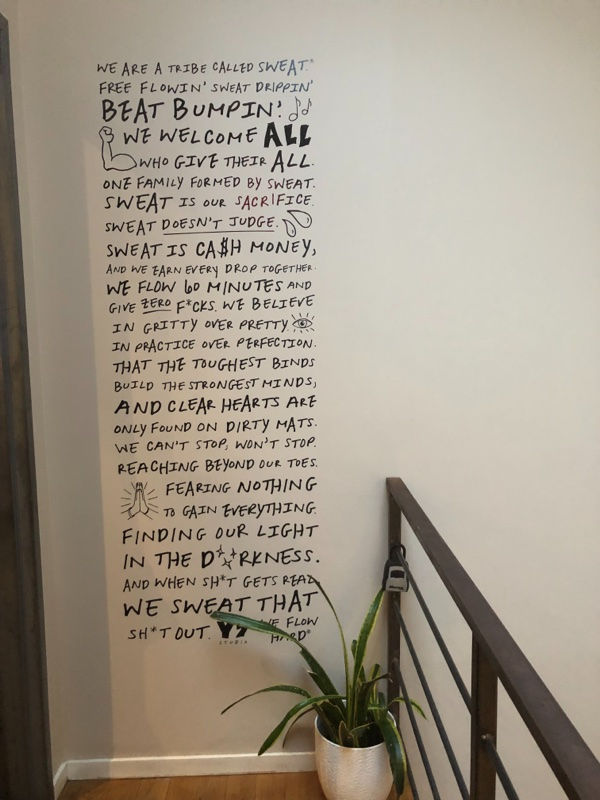 WE ARE A TRIBE CALLED SWEAT.®
FREE FLOWIN' SWEAT DRIPPIN'
BEAT BUMPIN'.
WE WELCOME ALL
WHO GIVE THEIR ALL.
ONE FAMILY FORMED BY SWEAT.
SWEAT IS OUR SACRIFICE.
SWEAT DOESN'T JUDGE.
SWEAT IS CA$H MONEY,
AND WE EARN EVERY DROP TOGETHER.
WE FLOW 60 MINUTES AND
GIVE ZERO F*CKS. WE BELIEVE
IN GRITTY OVER PRETTY
IN PRACTICE OVER PERFECTION.
THAT THE TOUGHEST BINDS
BUILD THE STRONGEST MINDS,
AND CLEAR HEARTS ARE
ONLY FOUND ON DIRTY MATS.
WE CAN'T STOP, WON'T STOP.
REACHING BEYOND OUR TOES.
FEARING NOTHING
TO GAIN EVERYTHING.
FINDING OUR LIGHT
IN THE D RKNESS.
AND WHEN SH*T GETS REAL
WE SWEAT THAT
SH*T OUT. Y7 WE FLOW
STUDIO HARD®